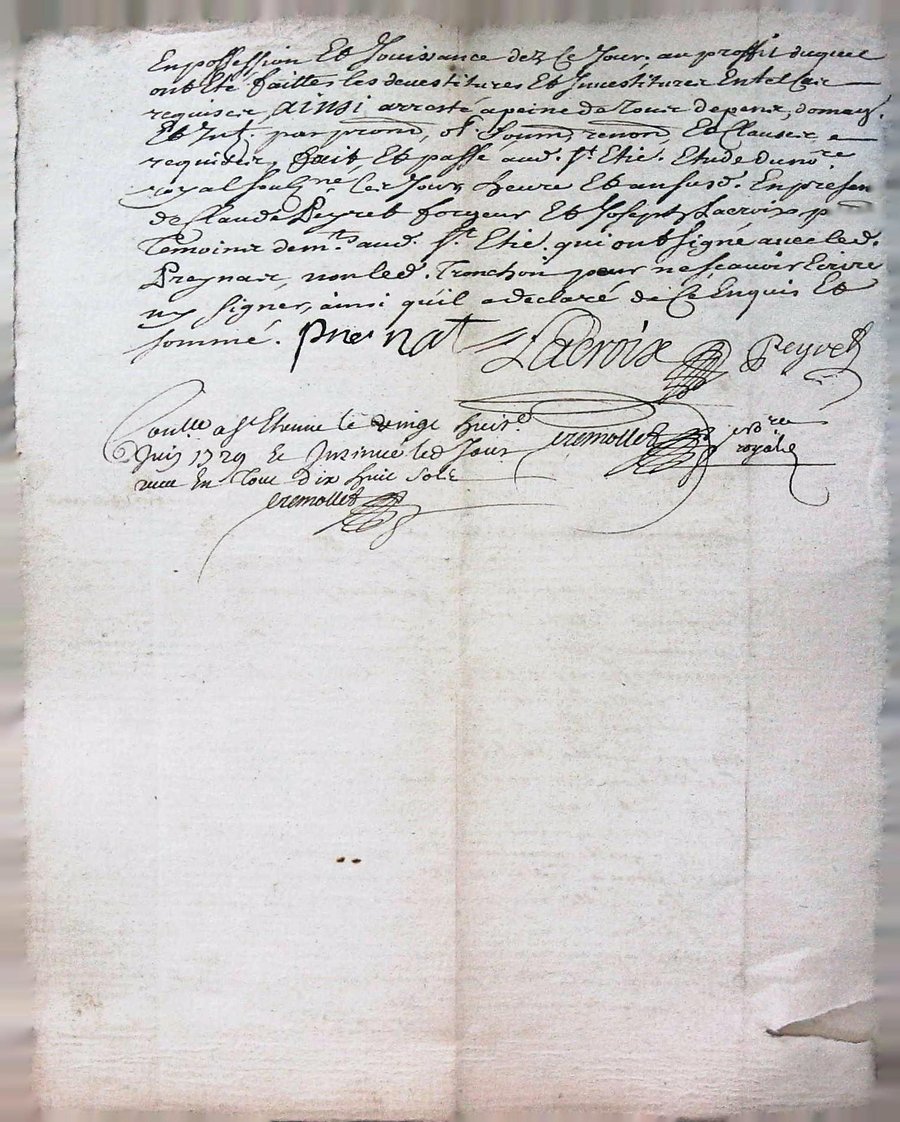 En possession Et Jouissance dez Ce Jour, au proffit duquel
ont Eté faittes les devestitures Et Investitures En tel Cas
requises, AINSI arresté a peine de tous depens, domag.
Et Int. par prom, ob. Soum, renon, Et Clauses, a
requises, fait, Et passé aud. St. Etie. Etude du no.re
royal soussigné, les Jour, heure Et an susd. En presen
de Claude Peyret forgeur Et Joseph Lacroix
Temoins dem.ts aud. St. Etie. qui ont signé avec led.
Preynat, non led. Tronchon pour ne scavoir Ecrire
ny signer, ainsi qu'il a declaré de Ce Enquis Et
sommé. preynat Lacroix Peyret
Con.lle a St Etienne le vingt huit
Juin 1729 Et Insinué led Jour
recu En Tout dix huit sols
royale